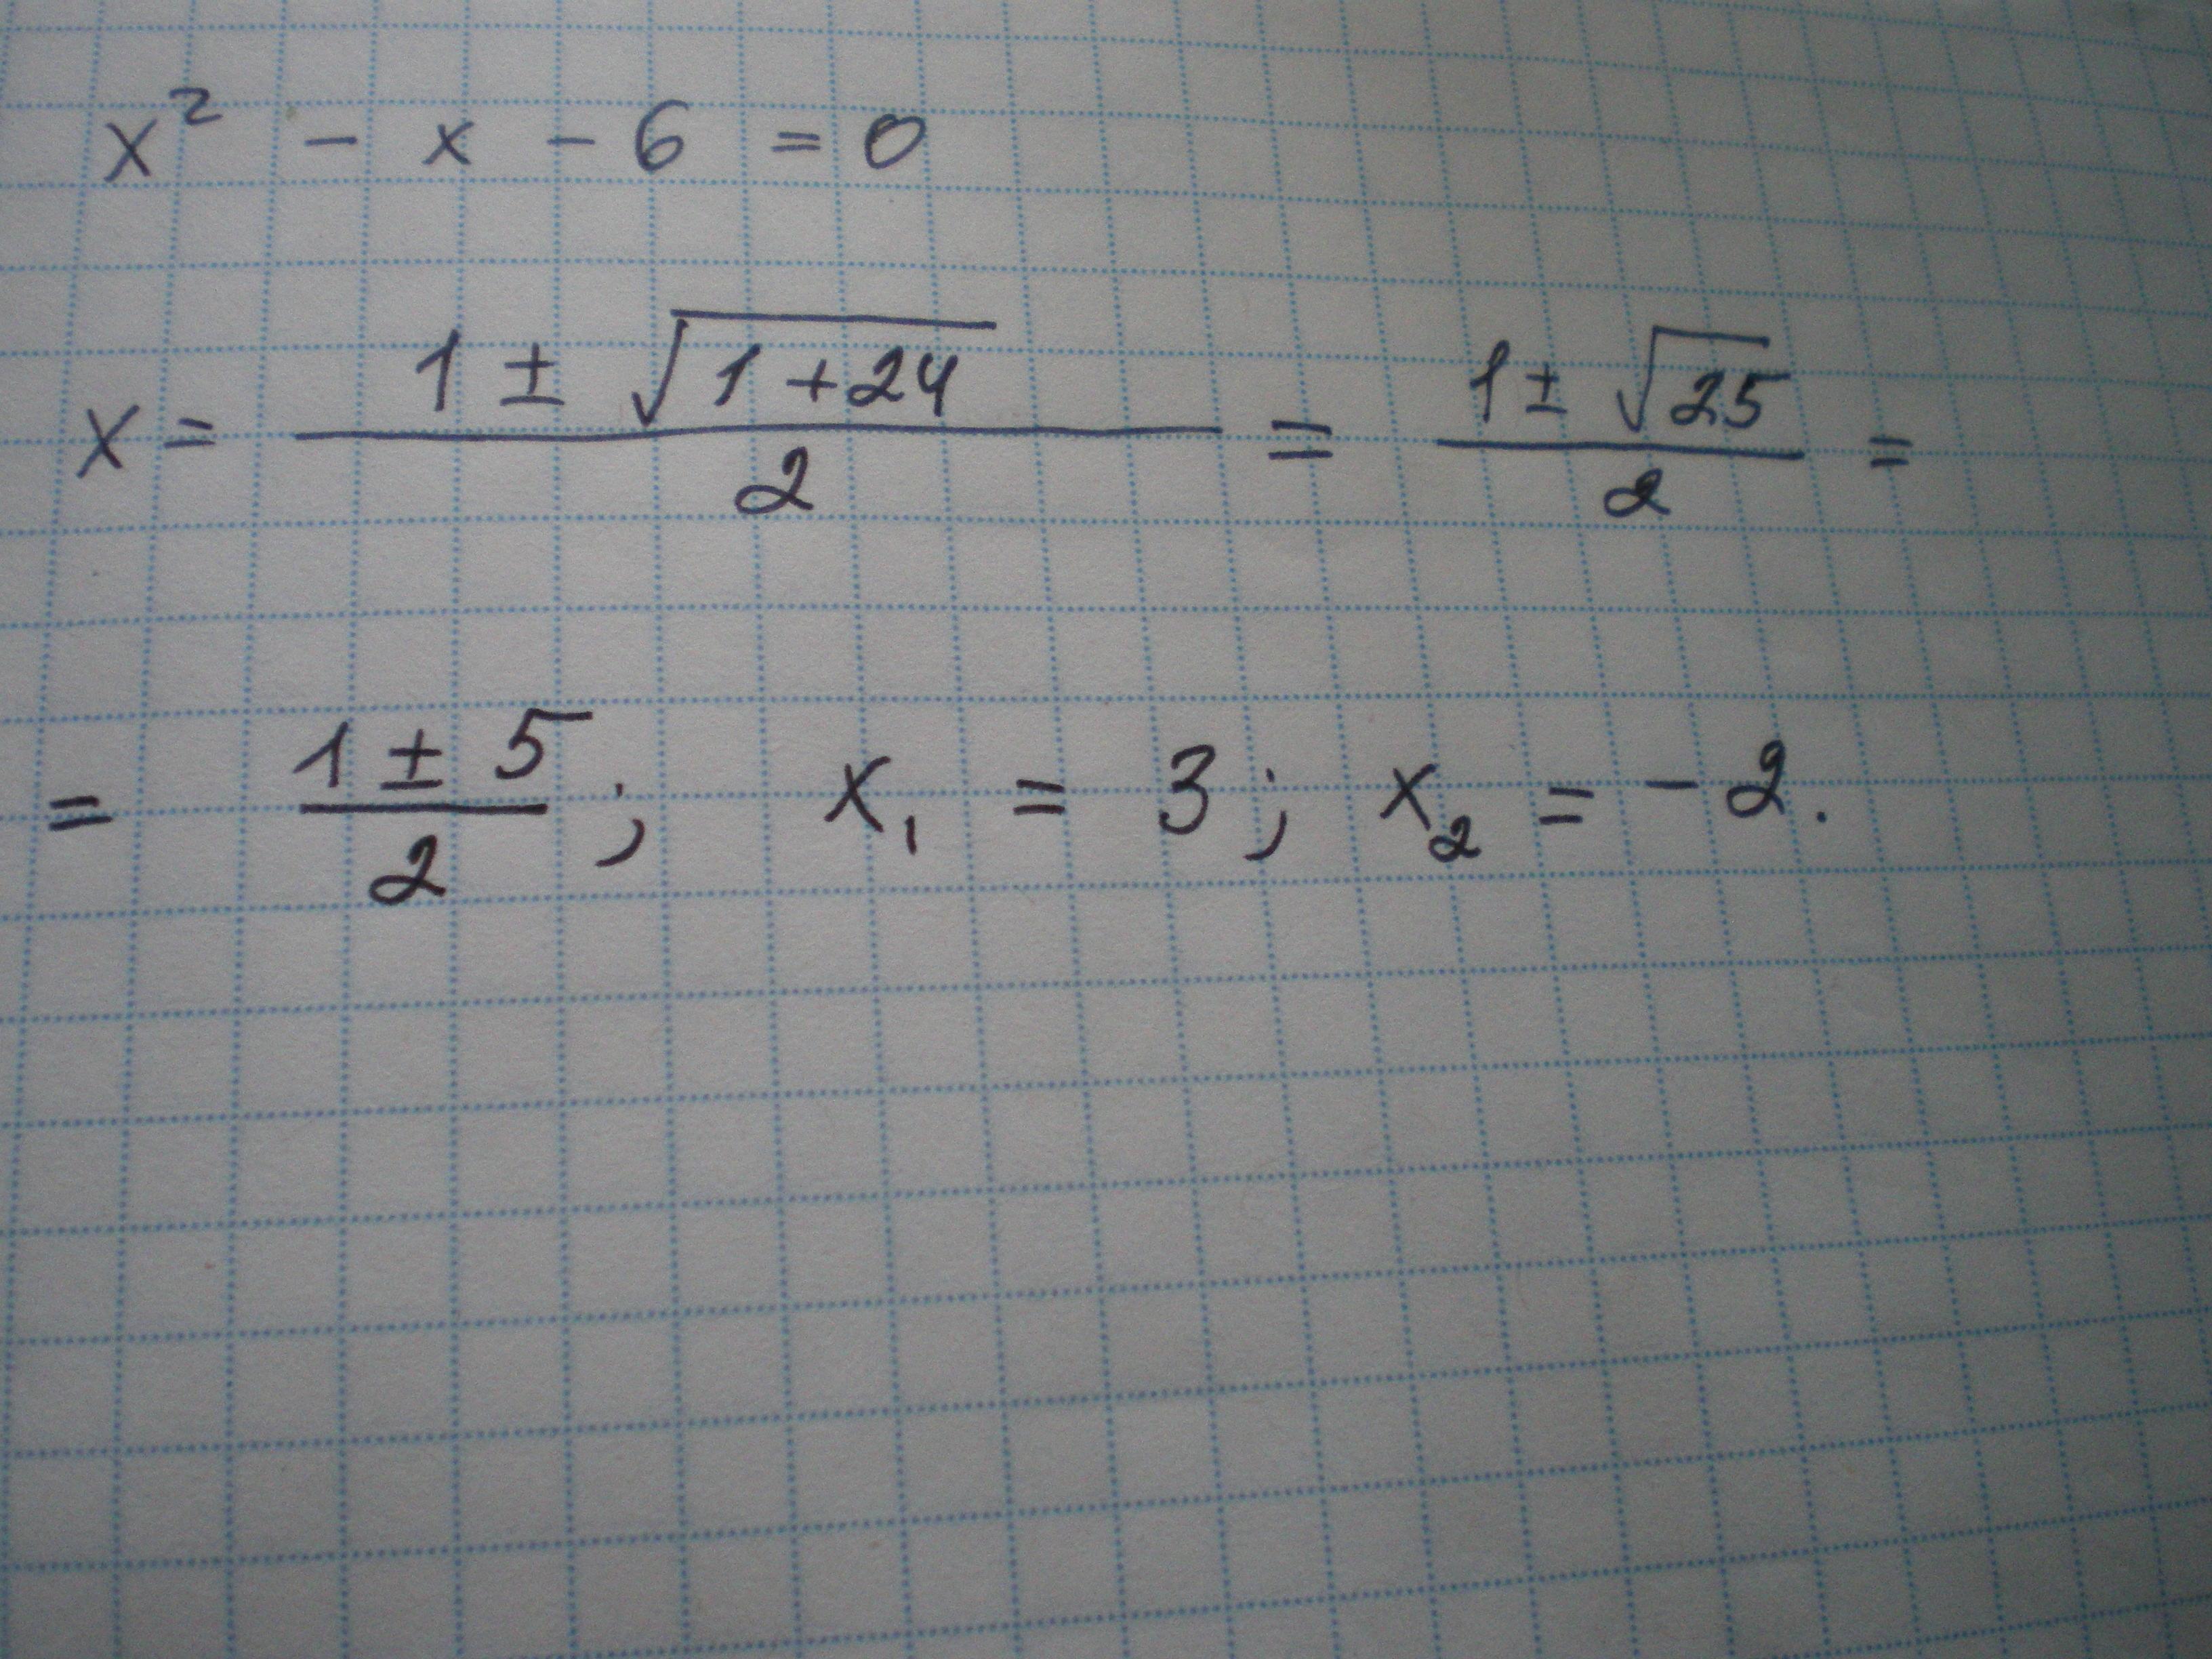 x² - x - 6 = 0
x = (1 ± √(1 + 24)) / 2 = (1 ± √25) / 2 =
= (1 ± 5) / 2 ; x₁ = 3 ; x₂ = -2.